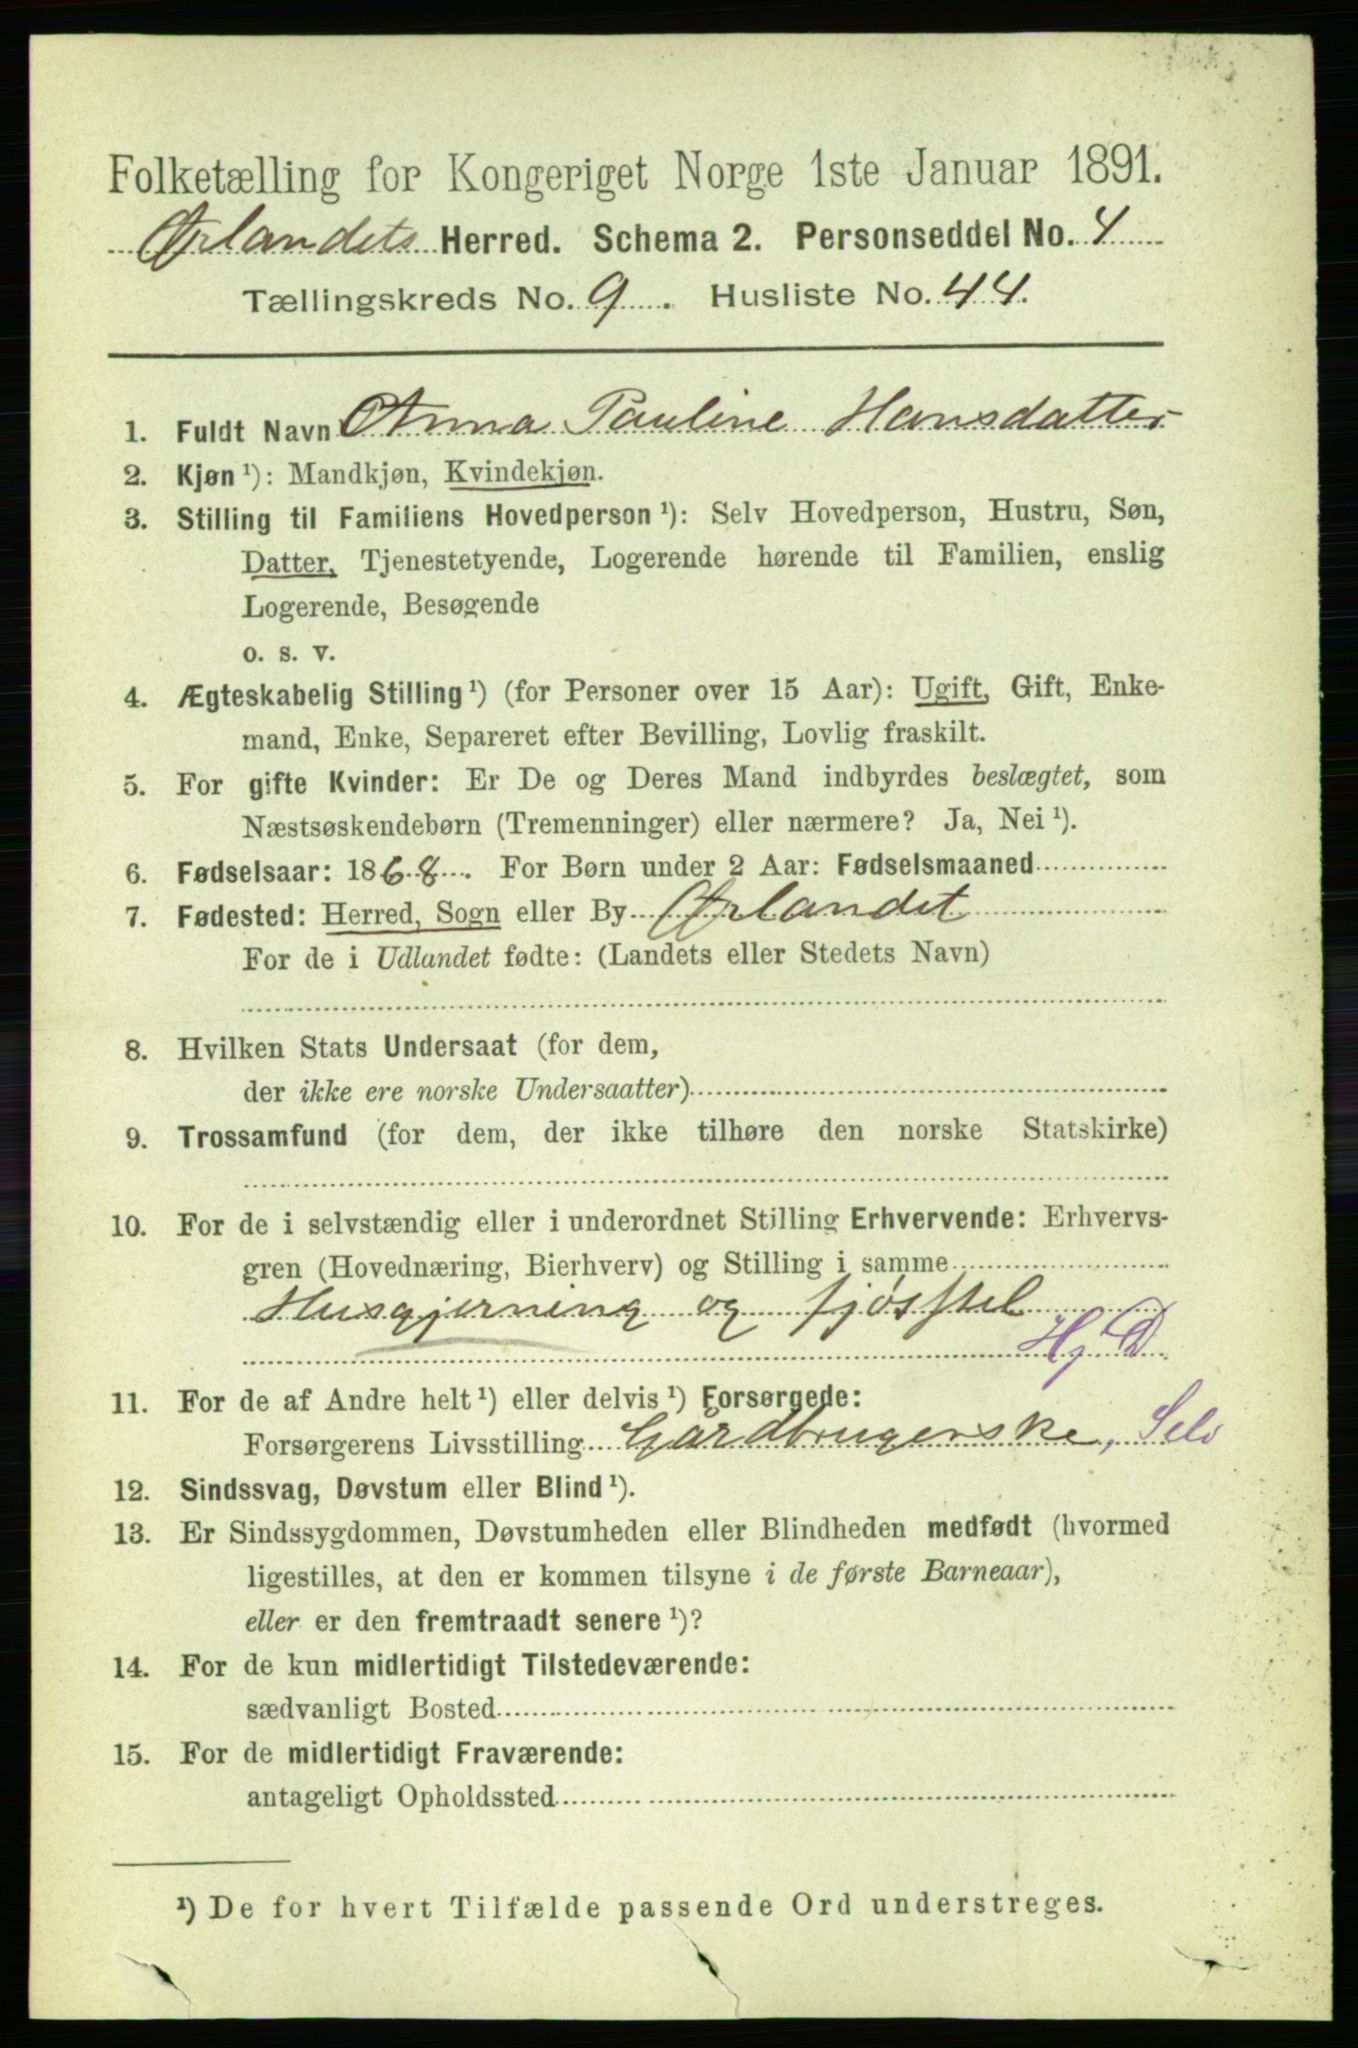 Folketælling for Kongeriget Norge 1ste Januar 1891.
Ørlandets Herred. Schema 2. Personseddel No. 4
Tællingskreds No. 9. Husliste No. 44.
1. Fuldt Navn Anna Pauline Hansdatter
2. Kjøn ¹): Mandkjøn, Kvindekjøn.
3. Stilling til Familiens Hovedperson ¹): Selv Hovedperson, Hustru, Søn,
Datter, Tjenestetyende, Logerende hørende til Familien, enslig
Logerende, Besøgende
o. s. v.
4. Ægteskabelig Stilling ¹) (for Personer over 15 Aar): Ugift, Gift, Enke-
mand, Enke, Separeret efter Bevilling, Lovlig fraskilt.
5. For gifte Kvinder: Er De og Deres Mand indbyrdes beslægtet, som
Næstsøskendebørn (Tremenninger) eller nærmere? Ja, Nei ¹).
6. Fødselsaar: 1868. For Børn under 2 Aar: Fødselsmaaned
7. Fødested: Herred, Sogn eller By Ørlandet
For de i Udlandet fødte: (Landets eller Stedets Navn)
8. Hvilken Stats Undersaat (for dem,
der ikke ere norske Undersaatter)
9. Trossamfund (for dem, der ikke tilhøre den norske Statskirke)
10. For de i selvstændig eller i underordnet Stilling Erhvervende: Erhvervs-
gren (Hovednæring, Bierhverv) og Stilling i samme
Husgjerning og fjøsstel
Hj D.
11. For de af Andre helt ¹) eller delvis ¹) Forsørgede:
Forsørgerens Livsstilling Gårdbrugerske, Selv
12. Sindssvag, Døvstum eller Blind ¹).
13. Er Sindssygdommen, Døvstumheden eller Blindheden medfødt (hvormed
ligestilles, at den er kommen tilsyne i de første Barneaar),
eller er den fremtraadt senere ¹)?
14. For de kun midlertidigt Tilstedeværende:
sædvanligt Bosted
15. For de midlertidigt Fraværende:
antageligt Opholdssted
¹) De for hvert Tilfælde passende Ord understreges.